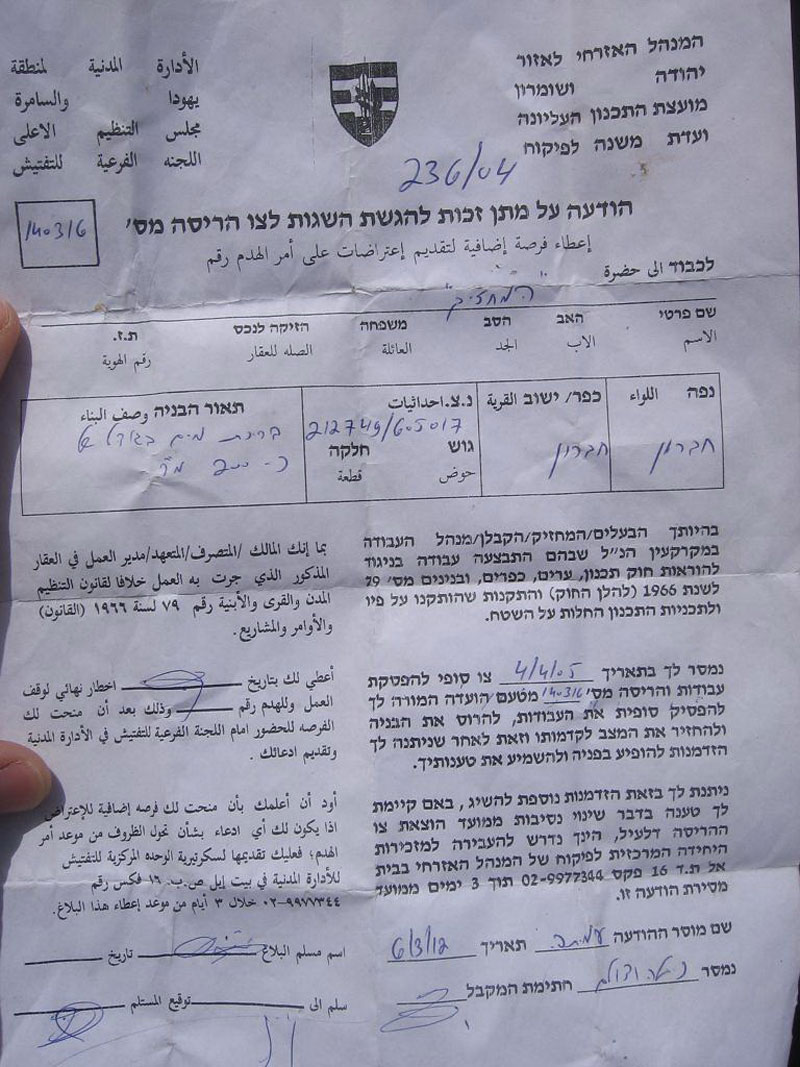 המנהל האזרחי לאזור
יהודה ושומרון
מועצת התכנון העליונה
ועדת משנה לפיקוח
الأدارة المدنية لمنطقة
يهودا والسامرة
مجلس التنظيم الاعلى
اللجنه الفرعية للتفتيش
236/04
הודעה על מתן זכות להגשת השגות לצו הריסה מס׳
140316
إعطاء فرصة إضافية لتقديم إعتراضات على أمر الهدم رقم
לכבוד الى حضرة
"המחזיק"
שם פרטי האב הסב משפחה הזיקה לנכס ת.ז.
الاسم الاب الجد العائلة الصله للعقار رقم الهوية
נפה اللواء
חברון
כפר/ ישוב القرية
חברון
נ.צ. احداثيات
212749/605017
גוש חלקה
حوض قطعة
תאור הבניה وصف البناء
בריכת מים בגודל של
כ- 200 מ"ר
בהיותך הבעלים/המחזיק/הקבלן/מנהל העבודה
במקרקעין הנ״ל שבהם התבצעה עבודה בניגוד
להוראות חוק תכנון, ערים, כפרים, ובנינים מס׳ 79
לשנת 1966 (להלן החוק) והתקנות שהותקנו על פיו
ולתכניות התכנון החלות על השטח.
بما إنك المالك /المتصرف/المتعهد/مدير العمل في العقار
المذكور الذي جرت به العمل خلافا لقانون التنظيم
المدن والقرى والأبنية رقم ٧٩ لسنة ١٩٦٦ (القانون)
والأوامر والمشاريع.
נמסר לך בתאריך 4/4/05 צו סופי להפסקת
עבודות והריסה מס׳ 140316 מטעם הועדה המורה לך
להפסיק סופית את העבודות, להרוס את הבניה
ולהחזיר את המצב לקדמותו וזאת לאחר שניתנה לך
הזדמנות להופיע בפניה ולהשמיע את טענותיך.
أعطي لك بتاريخ اخطار نهائي لوقف
العمل وللهدم رقم وذلك بعد أن منحت لك
الفرصه للحضور امام اللجنة الفرعية للتفتيش في الأدارة المدنية
وتقديم ادعائك.
ניתנת לך בזאת הזדמנות נוספת להשיג, באם קיימת
לך טענה בדבר שינוי נסיבות ממועד הוצאת צו
ההריסה דלעיל, הינך נדרש להעבירה למזכירות
היחידה המרכזית לפיקוח של המנהל האזרחי בבית
אל ת.ד 16 פקס 02-9977344 תוך 3 ימים ממועד
מסירת הודעה זו.
أود أن أعلمك بأن منحت لك فرصه إضافية للإعتراض
اذا يكون لك أي ادعاء بشأن تحول الظروف من موعد أمر
الهدم؛ فعليك تقديمها لسكرتيرية الوحده المركزية للتفتيش
للأدارة المدنية في بيت إيل ص.ب. ١٦ فكس رقم
٠٢-٩٩٧٧٣٤٤ خلال ٣ أيام من موعد إعطاء هذا البلاغ.
שם מוסר ההודעה תאריך 6/3/12
נמסר חתימת המקבל
اسم مسلم البلاغ تاريخ
سلم الى توقيع المستلم